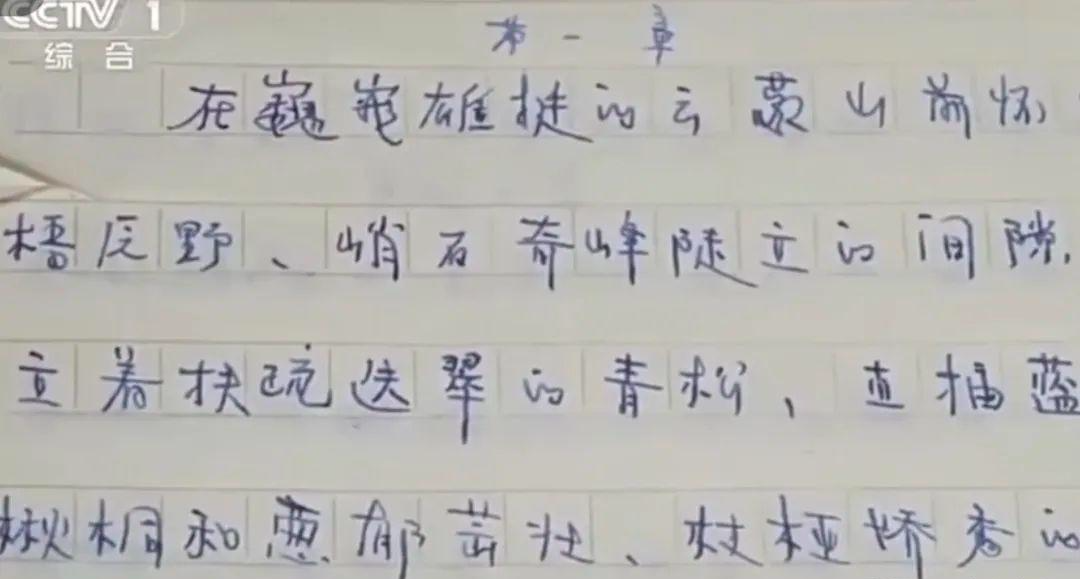 CCTV 1
综合
第一章
在巍巍雄挺的云蒙山前怀
野、峭石奇峰陡立的间隙,
立着扶疏迭翠的青松、直插蓝
楸桐和葱郁茁壮、枝桠娇秀的